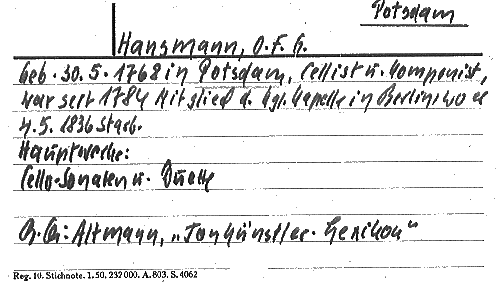 Potsdam
Hansmann, O. F. G.
Geb. 30. 5. 1768 in Potsdam, Cellist u. Komponist,
war seit 1784 Mitglied d. kgl. Kapelle in Berlin, wo er
4. 5. 1836 starb.
Hauptwerke:
Cello-Sonaten u. Duette
Altmann, „Tonkünstler-Lexikon"
Reg. 10. Stichnote. 1. 50, 232000. A. 803. S. 4062